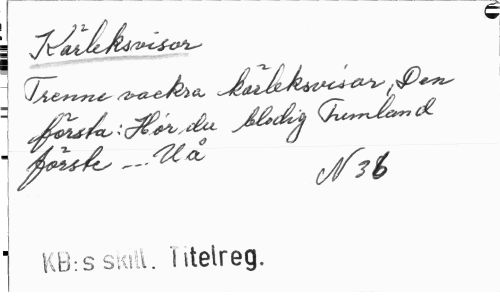 Kärleksvisor
Trenne vackra kärleksvisor, Den
första: Hör, du blodig Fumland
förste --- U å
N 36
KB:s skill. Titelreg.